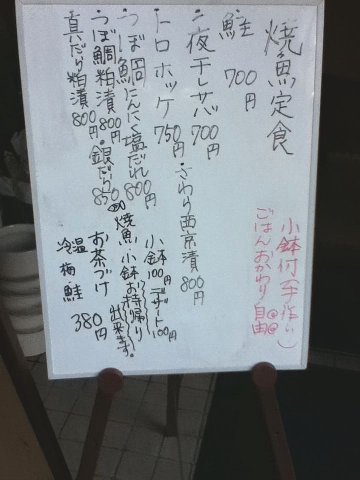 焼魚定食
小鉢付(手作り)
ごはんおかわり自由
鮭 700円
一夜干しサバ 700円・さわら西京漬 800円
トロホッケ 750円
つぼ鯛にんにく塩だれ 800円
つぼ鯛粕漬 800円・銀だら 850
真だら粕漬 800円
小鉢100円 デザート100円
焼魚小鉢お持帰り出来ます。
お茶づけ 380円
温 冷 梅 鮭